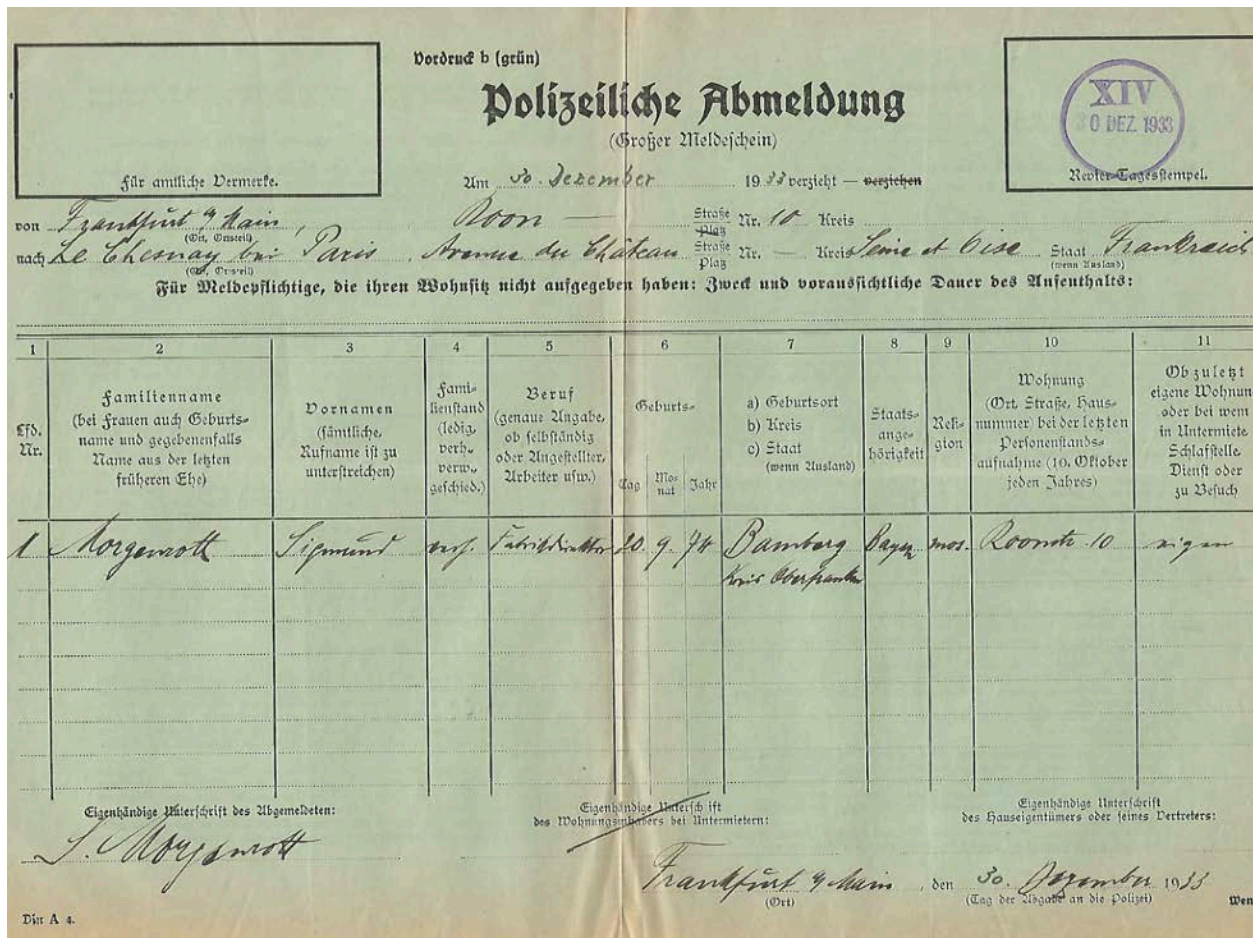 Vordruck b (grün)
Polizeiliche Abmeldung
(Großer Meldeschein)
XIV
30 DEZ. 1933
Für amtliche Vermerke.
Revier-Tagesstempel.
Am 30. Dezember 1933 verzieht — verziehen
von Frankfurt a/Main, Roon — Straße Platz Nr. 10 Kreis
(Ort, Ortsteil)
nach Le Chesnay bei Paris, Avenue du Château Straße Platz Nr. — Kreis Seine et Oise Staat Frankreich
(Ort, Ortsteil) (wenn Ausland)
Für Meldepflichtige, die ihren Wohnsitz nicht aufgegeben haben: Zweck und voraussichtliche Dauer des Aufenthalts:
1 2 3 4 5 6 7 8 9 10 11
Lfd. Nr.
Familienname
(bei Frauen auch Geburts-
name und gegebenenfalls
Name aus der letzten
früheren Ehe)
Vornamen
(sämtliche,
Rufname ist zu
unterstreichen)
Fami-
lienstand
(ledig,
verh.,
verw.,
geschied.)
Beruf
(genaue Angabe,
ob selbständig
oder Angestellter,
Arbeiter usw.)
Geburts-
Tag Mo-nat Jahr
a) Geburtsort
b) Kreis
c) Staat
(wenn Ausland)
Staats-
ange-
hörigkeit
Reli-
gion
Wohnung
(Ort, Straße, Haus-
nummer) bei der letzten
Personenstands-
aufnahme (10. Oktober
jeden Jahres)
Ob zuletzt
eigene Wohnun
oder bei wem
in Untermiete,
Schlafstelle,
Dienst oder
zu Besuch
1 Morgenroth Sigmund verh. Fabrikdirektor 20. 9. 74 Bamberg Bayer mos. Roonstr. 10 eigen
Kreis Oberfranken
Eigenhändige Unterschrift des Abgemeldeten:
S. Morgenroth
Eigenhändige Untersch ift
des Wohnungsinhabers bei Untermietern:
Eigenhändige Unterschrift
des Hauseigentümers oder seines Vertreters:
Frankfurt a/Main, den 30. Dezember 1933
(Ort) (Tag der Abgabe an die Polizei)
Din A 4.
Wen